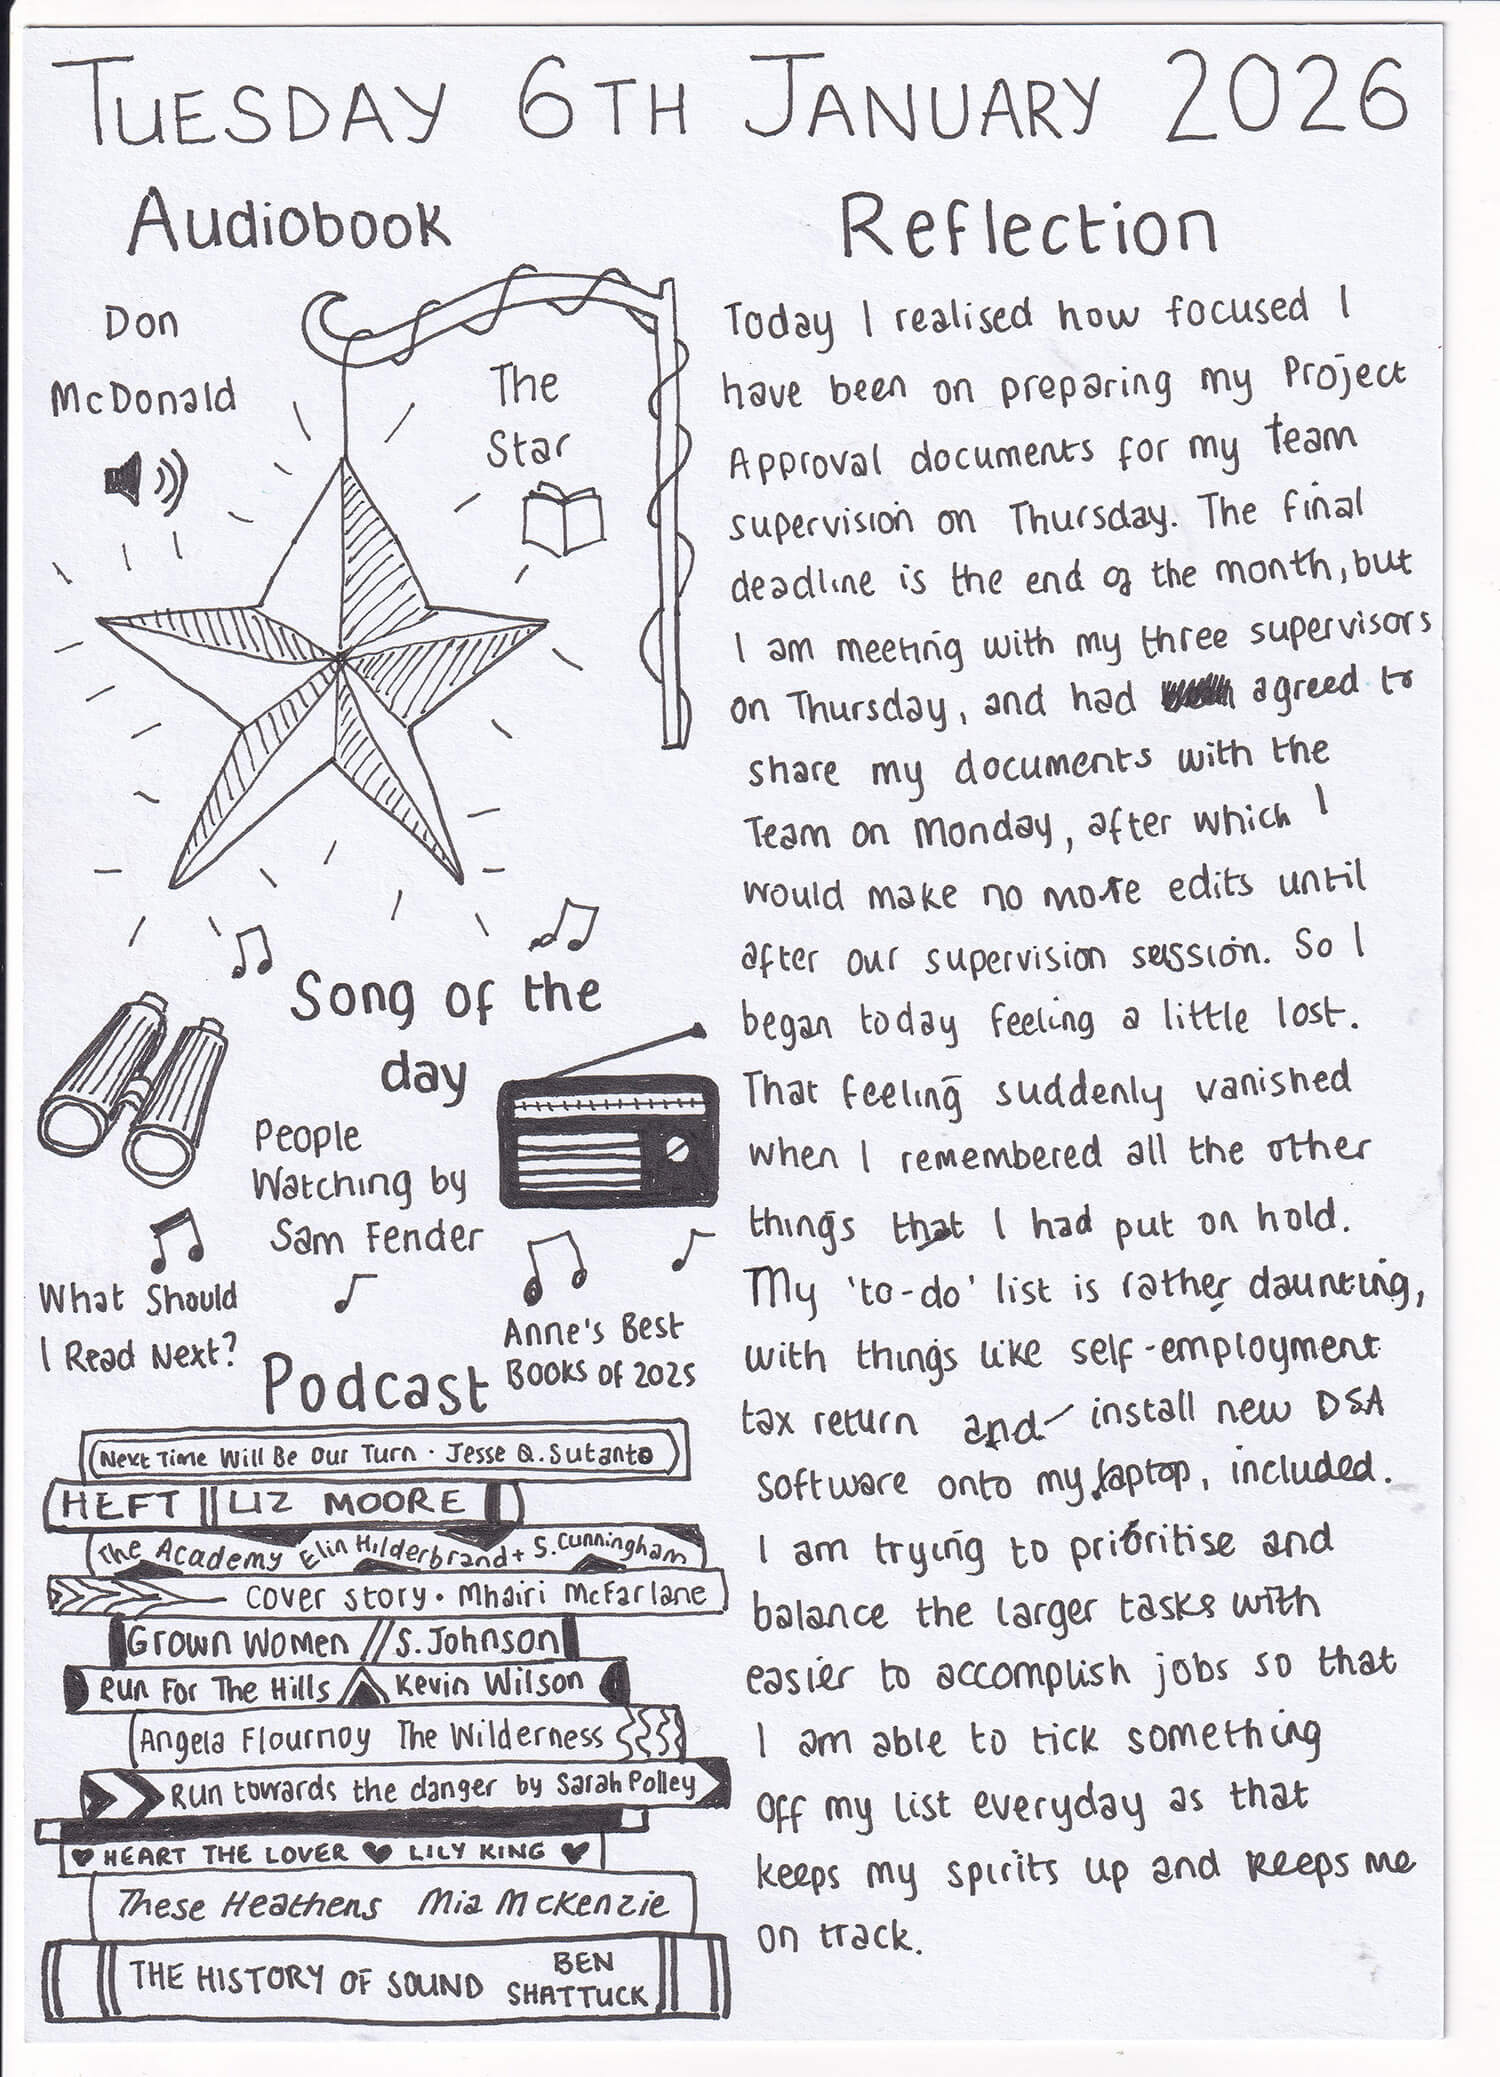 TUESDAY 6TH JANUARY 2026
Audiobook
Don
McDonald
The
Star
Song of the
day
People
Watching by
Sam Fender
What Should
I Read Next?
Podcast
Anne's Best
Books of 2025
Next Time Will Be Our Turn · Jesse Q. Sutanto
HEFT || LIZ MOORE
The Academy Elin Hilderbrand + S. Cunningham
Cover Story · Mhairi McFarlane
Grown Women // S. Johnson
Run For The Hills Kevin Wilson
Angela Flournoy The Wilderness
Run towards the danger by Sarah Polley
HEART THE LOVER LILY KING
These Heathens Mia McKenzie
THE HISTORY OF SOUND BEN
SHATTUCK
Reflection
Today I realised how focused I
have been on preparing my Project
Approval documents for my team
supervision on Thursday. The final
deadline is the end of the month, but
I am meeting with my three supervisors
on Thursday, and had agreed to
share my documents with the
Team on Monday, after which I
would make no more edits until
after our supervision session. So I
began today feeling a little lost.
That feeling suddenly vanished
when I remembered all the other
things that I had put on hold.
My 'to-do' list is rather daunting,
with things like self-employment
tax return and install new DSA
software onto my laptop, included.
I am trying to prioritise and
balance the larger tasks with
easier to accomplish jobs so that
I am able to tick something
off my list everyday as that
keeps my spirits up and keeps me
on track.